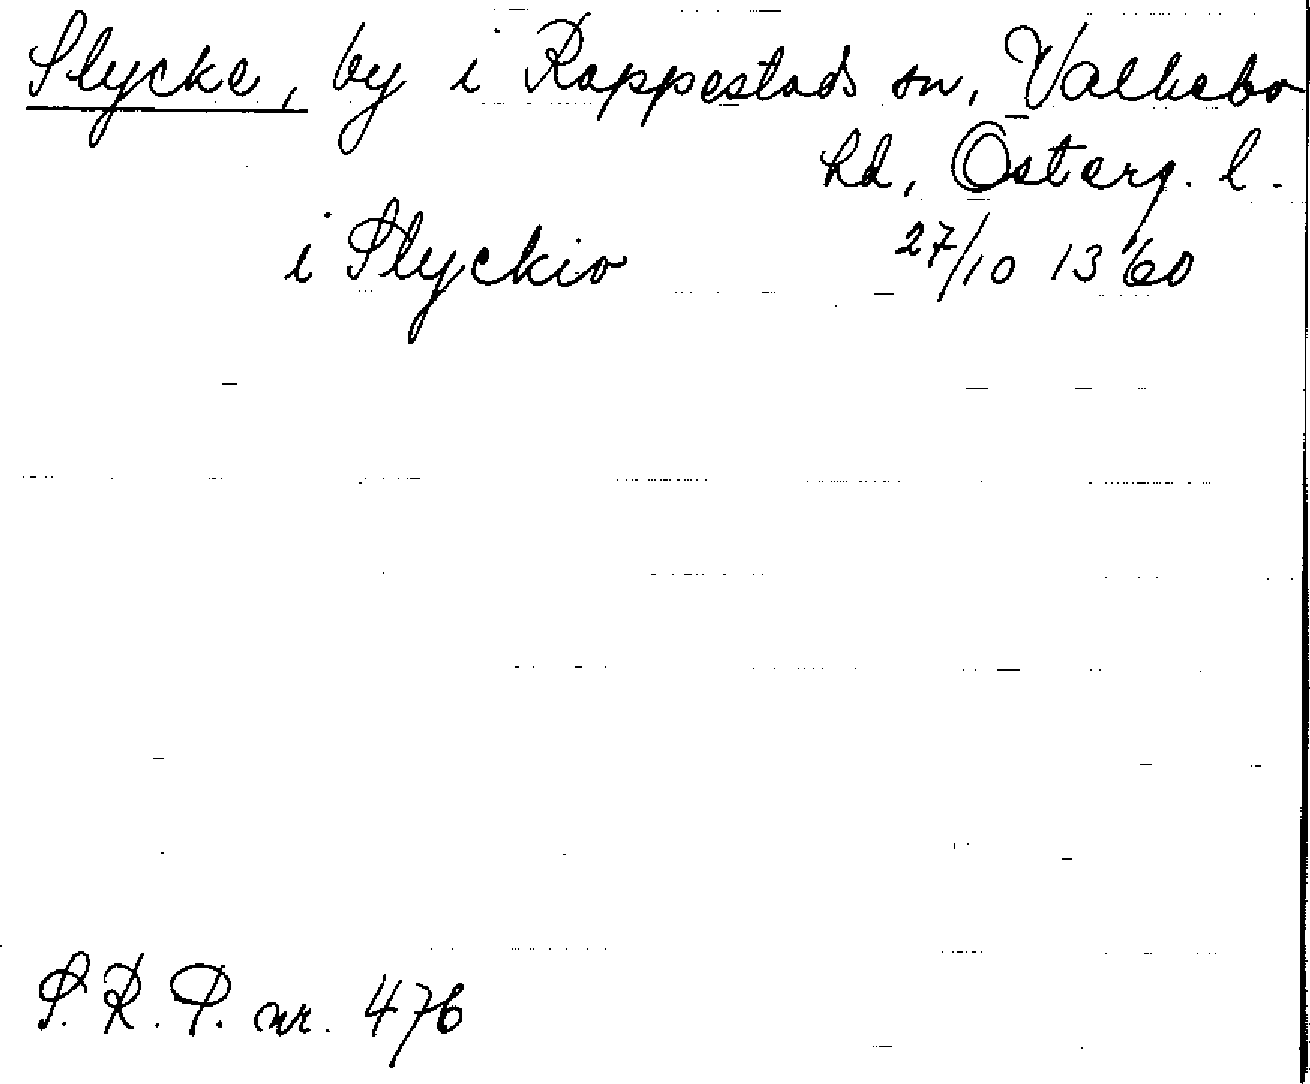 Slycke, by i Rappestads sn, Valkebo
hd, Österg. l.
i Slyckio 27/10 1360
S.R.P. nr. 476